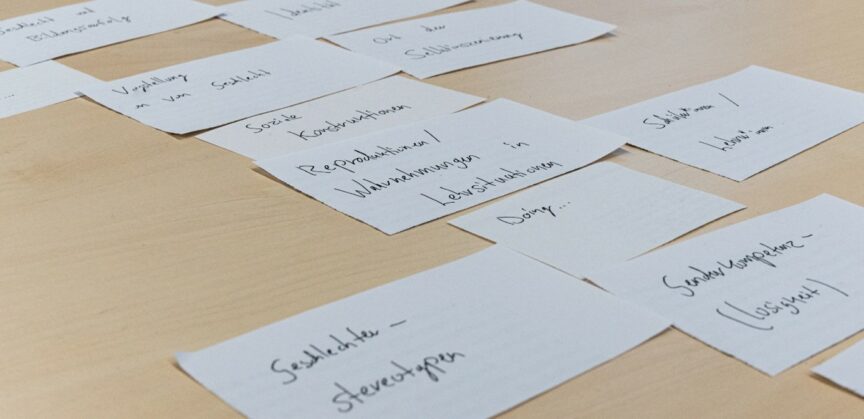 Geschlecht und
Bildungserfolg
Identität
Ort der
Selbstinszenierung
...
Vorstellung
en von Geschlecht
Soziale
Konstruktionen
Reproduktionen/
Wahrnehmungen in
Lehrsituationen
Schüler*innen /
Lehrer*innen
Doing...
Genderkompetenz-
(losigkeit)
Geschlechter-
stereotypen